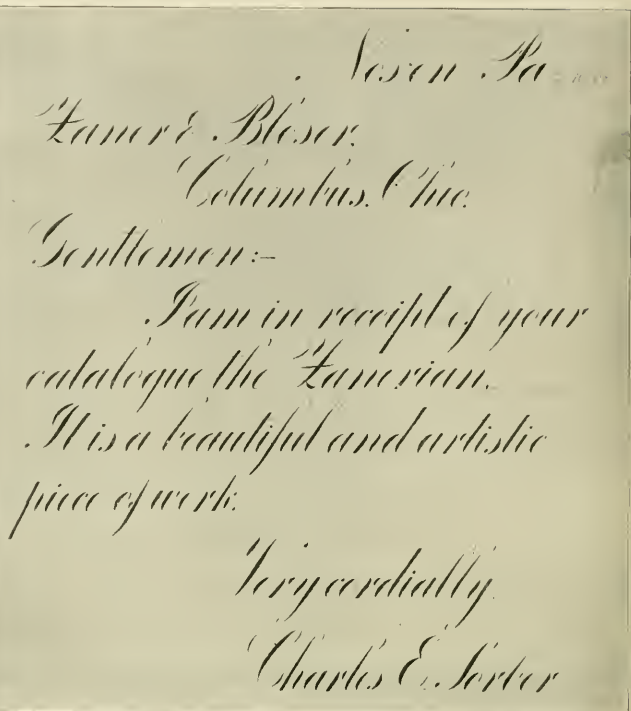 Noxen Pa
Zaner & Bloser.
Columbus. Ohio.
Gentlemen:-
I am in receipt of your
catalogue the Zanerian.
It is a beautiful and artistic
piece of work.
Very cordially.
Charles E. Sorber